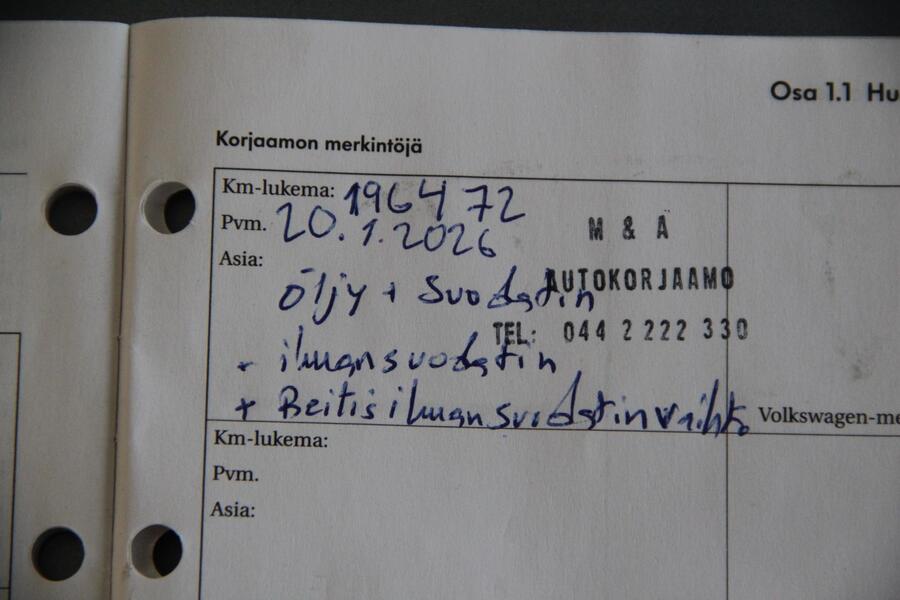 Osa 1.1 Hu
Korjaamon merkintöjä
Km-lukema: 196472
Pvm. 20.1.2026
M & A
Asia:
AUTOKORJAAMO
öljy + suodatin
TEL: 044 2 222 330
- ilmansuodatin
+ Reitisilmansuodatinvaihto
Volkswagen-me
Km-lukema:
Pvm.
Asia: